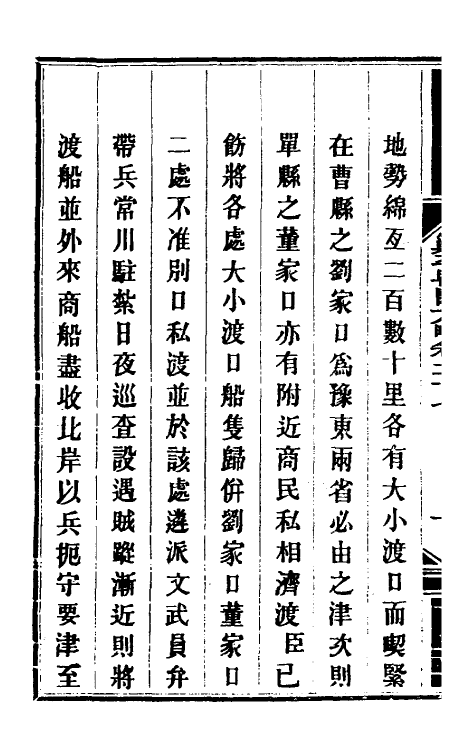 地勢綿亙二百數十里各有大小渡口而喫緊
在曹縣之劉家口爲豫東兩省必由之津次則
單縣之董家口亦有附近商民私相濟渡臣已
飭將各處大小渡口船隻歸併劉家口董家口
二處不准別口私渡並於該處遴派文武員弁
帶兵常川駐紮日夜巡查設遇賊蹤漸近則將
渡船並外來商船盡收北岸以兵扼守要津至